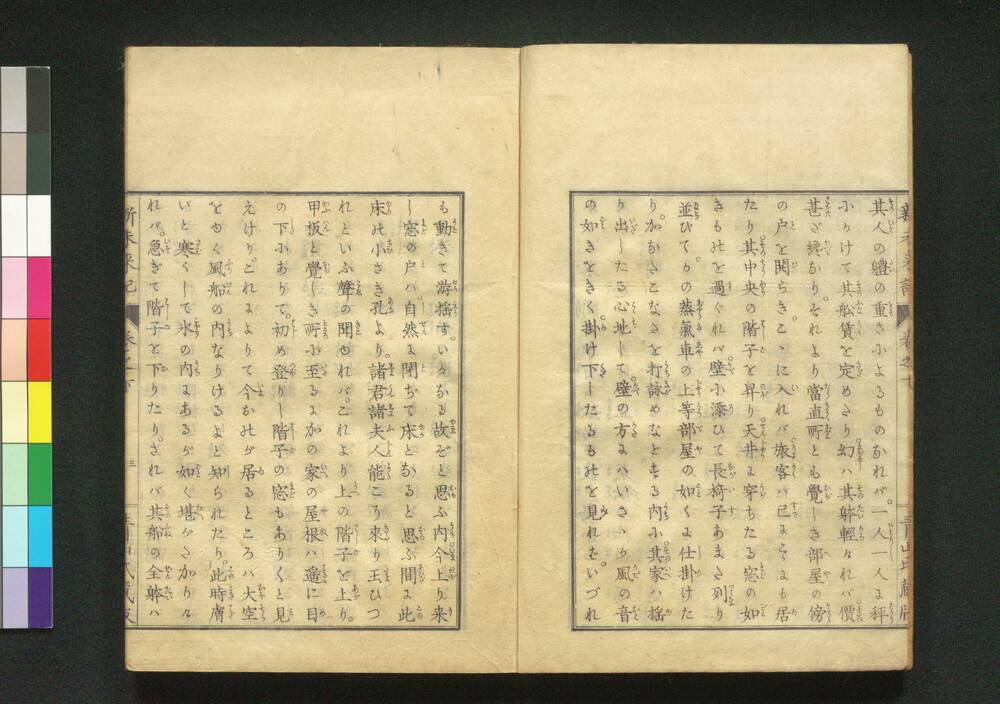 其人の軆の重さによるものなれバ。一人一人に秤
にかけて其舩賃を定めたり幻ハ其躰輕けれバ價
甚ざ終なり。それより當直所とも覺しき部屋の傍
の戸を開らき。こゝに入れバ旅客ハ已にそこにも居
たり其中央の階子を昇り天井に穿ちたる窓の如
きものを過ぐれバ。壁に添ひて長椅子あまた列り
並びて。かの蒸氣車の上等部屋の如くに仕掛けた
り。かなたこなたを打詠めなどする内に。其家ハ揺
り出したる心地して壁の方にハいさゝか風の音
の如きをきく。掛け下したるものを見れむ。いづれ
も動きて游揺す。いかなる故ぞと思ふ内今上り来
し窓の戸ハ。自然に閉ぢて床となると思ふ間に此
床の小さき孔より。諸君諸夫人能こそ來り玉ひつ
れといふ聲の聞ゆれバ。これより上の階子を上り。
甲板と覺しき所に至るに加の家の屋根ハ遥に目
の下にありて。初め登りし階子の窓もありくと見
えけり。これによりて今おのが居るところハ大空
をゆく風船の内なりけるよと知られたり。此時膚
いと寒くして氷の内にあるが如く堪がたかりけ
れバ。急ぎて階子を下りたり。されバ其船の全躰ハ
新未來記
卷之下
三
青山氏藏版